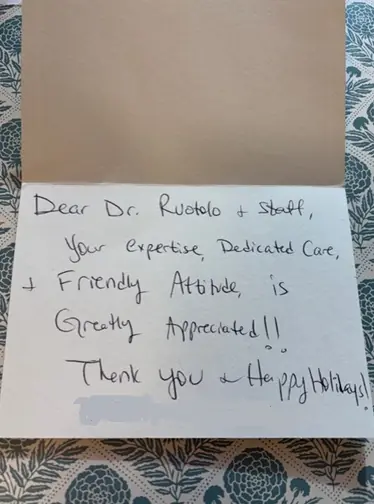 Dear Dr. Ruotolo + Staff,
Your expertise, Dedicated Care,
+ Friendly Attitude, is
Greatly Appreciated!!
Thank you & Happy Holidays!